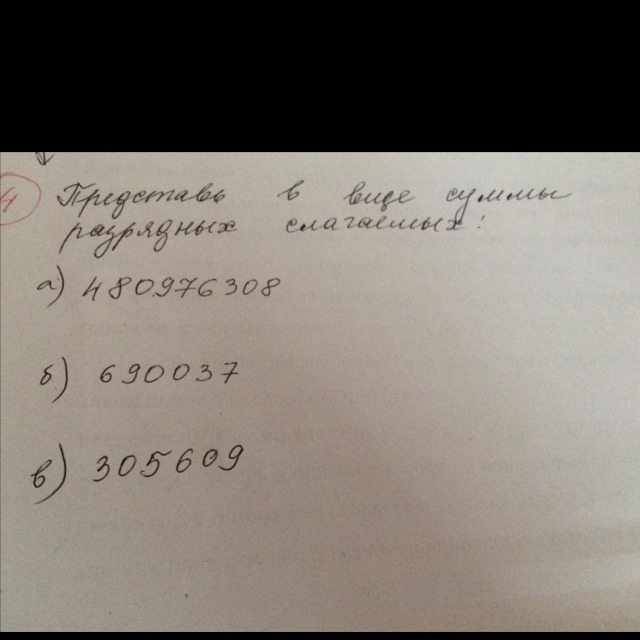 4 Представь в виде суммы
разрядных слагаемых:
а) 480976308
б) 690037
в) 305609